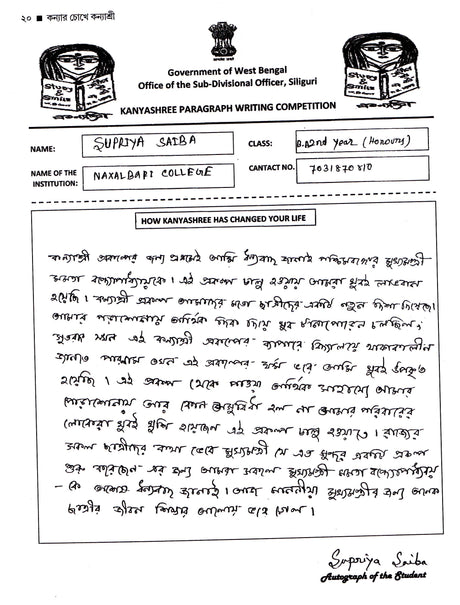 ২০ ■ কন্যার চোখে কন্যাশ্রী
Government of West Bengal
Office of the Sub-Divisional Officer, Siliguri
KANYASHREE PARAGRAPH WRITING COMPETITION
Study & Smile
Study & Smile
NAME: SUPRIYA SAIBA
CLASS: B.A 2nd year (Honours)
NAME OF THE INSTITUTION: NAXALBARI COLLEGE
CANTACT NO.: 7031870810
HOW KANYASHREE HAS CHANGED YOUR LIFE
কন্যাশ্রী প্রকল্পের জন্য প্রথমেই আমি ধন্যবাদ জানাই পশ্চিমবঙ্গের মুখ্যমন্ত্রী
মমতা বন্দ্যোপাধ্যায়কে। এই প্রকল্প চালু হওয়ায় আমরা খুবই লাভবান
হয়েছি। কন্যাশ্রী প্রকল্প আমাদের মতো ছাত্রীদের একটা নতুন দিশা দিয়েছে।
আমার পরাশোনায় আর্থিক দিক দিয়ে খুব টানাপোরেন চলছিল,
সুতরাং যখন এই কন্যাশ্রী প্রকল্পের ব্যাপারে বিদ্যালয়ে থাকাকালীন
জানতে পারলাম তখন এই প্রকল্পের ফর্ম ভরে আমি খুবই উপকৃত
হয়েছি। এই প্রকল্প থেকে পাওয়া আর্থিক সাহায্যে আমার
পোরাশোনায় আর কোন অসুবিধা হল না আমার পরিবারের
লোকেরা খুবই খুশি হয়েছেন এই প্রকল্প চালু হওয়াতে। রাজ্যের
সকল ছাত্রীদের কথা ভেবে মুখ্যমন্ত্রী যে এত সুন্দর একটা প্রকল্প
শুরু করেছেন এর জন্য আমরা সকলে মুখ্যমন্ত্রী মমতা বন্দ্যোপাধ্যায়
– কে অশেষ ধন্যবাদ জানাই। আজ মাননীয়া মুখ্যমন্ত্রীর জন্য অনেক
ছাত্রীর জীবন শিক্ষার আলোয় ভরে গেল।
Supriya Saiba
Autograph of the Student